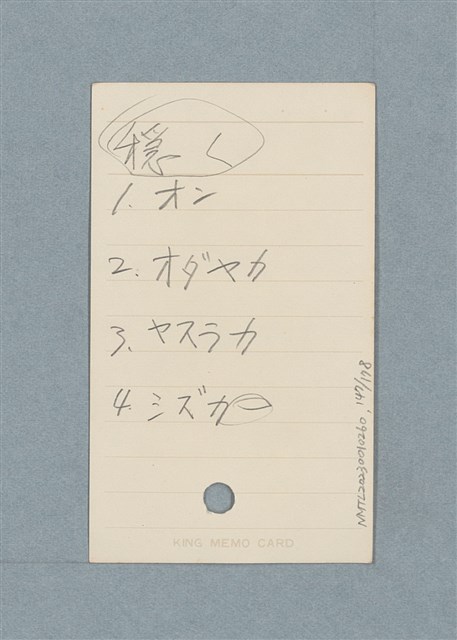 穏く
1. オン
2. オダヤカ
3. ヤスラカ
4. シズカ
KING MEMO CARD
NMTL20030010260, 147/198